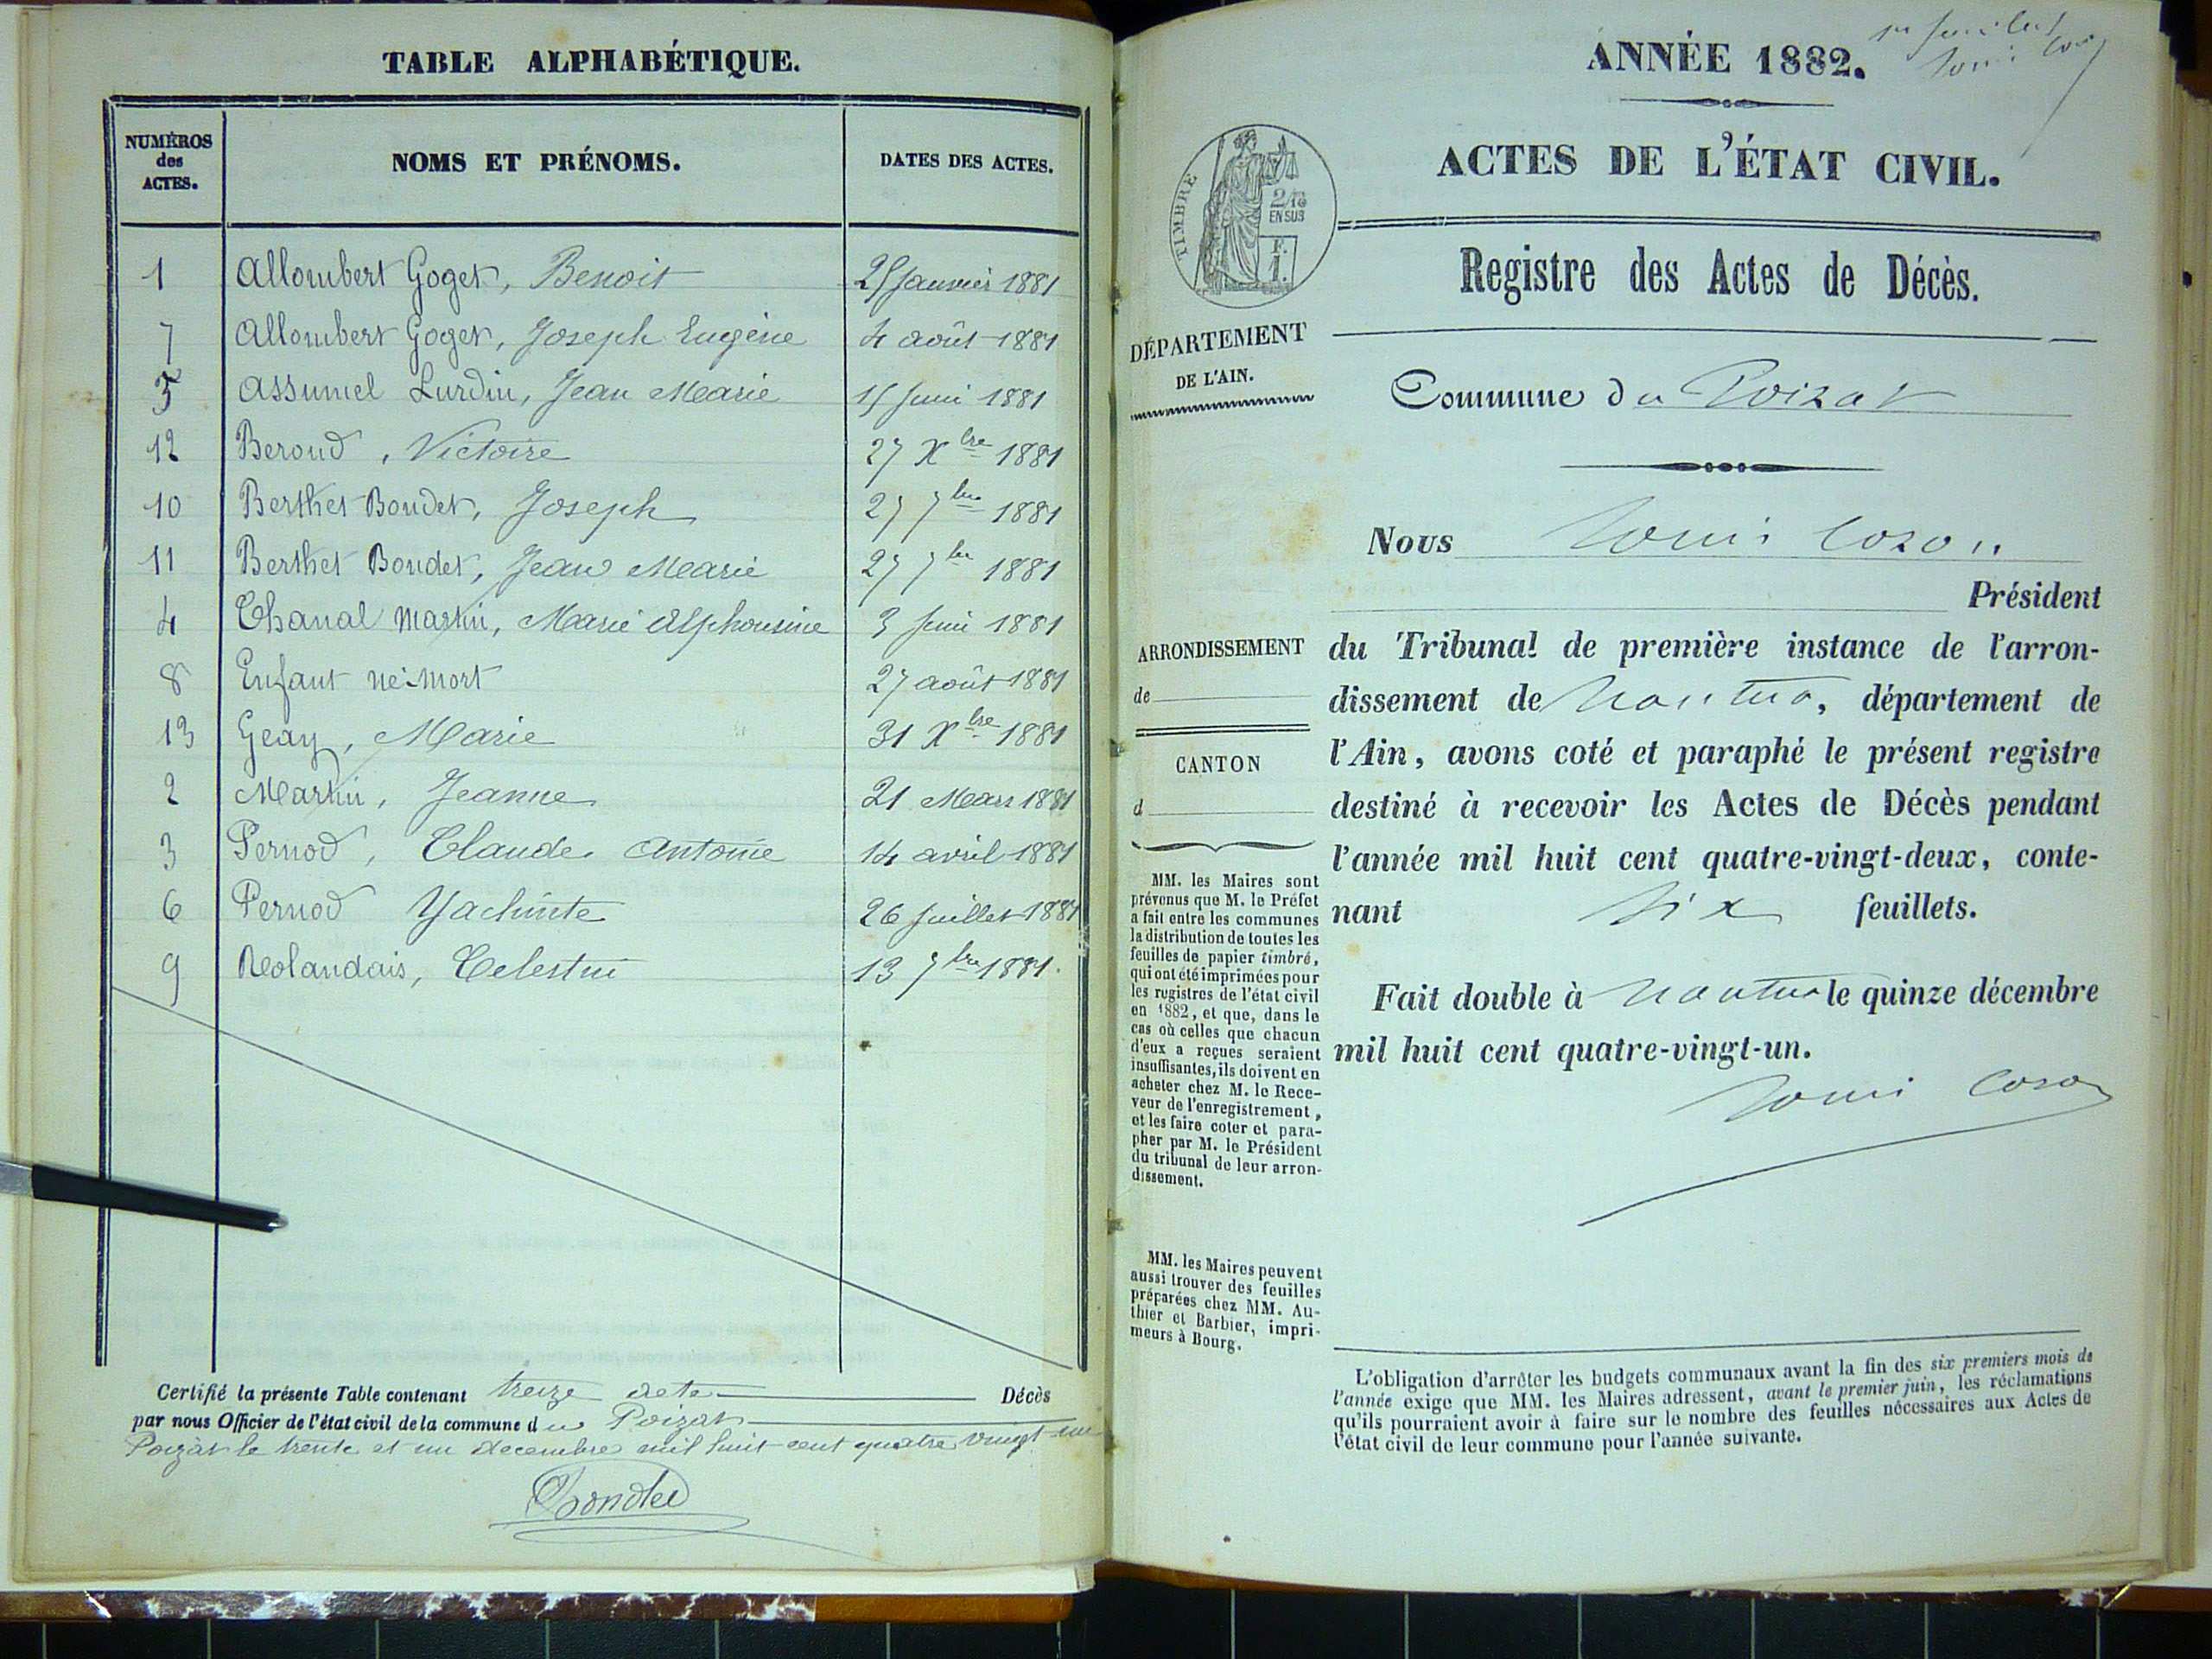 TABLE ALPHABÉTIQUE.
NUMÉROS des ACTES.
NOMS ET PRÉNOMS.
DATES DES ACTES.
1 Allombert Goget, Benoit 25 Janvier 1881
7 Allombert Goget, Joseph Eugène 4 août 1881
5 Assumel Lurdin, Jean Marie 15 Juin 1881
12 Beroud, Victoire 27 Xbre 1881
10 Berthet Boudet, Joseph 27 7bre 1881
11 Berthet Boudet, Jean Marie 27 7bre 1881
4 Chanal Martin, Marie Alphonsine 3 Juin 1881
8 Enfant né mort 27 août 1881
13 Geay, Marie 31 Xbre 1881
2 Martin, Jeanne 21 Mars 1881
3 Pernod, Claude Antoine 14 avril 1881
6 Pernod Yachinte 26 Juillet 1881
9 Rolandais, Celestin 13 7bre 1881.
Certifié la présente Table contenant treize acte Décès
par nous Officier de l'état civil de la commune du Poizat
Poizat le trente et un decembre mil huit cent quatre vingt un
ANNÉE 1882.
ACTES DE L'ÉTAT CIVIL.
TIMBRE
2/10
EN SUS
F.
1.
Registre des Actes de Décès.
DÉPARTEMENT
DE L'AIN.
Commune du Poizat
Nous Louis Cozon
Président
ARRONDISSEMENT
de
CANTON
d
du Tribunal de première instance de l'arron-
dissement de Nantua, département de
l'Ain, avons coté et paraphé le présent registre
destiné à recevoir les Actes de Décès pendant
l'année mil huit cent quatre-vingt-deux, conte-
nant six feuillets.
Fait double à Nantua le quinze décembre
mil huit cent quatre-vingt-un.
Louis Cozon
MM. les Maires sont
prévenus que M. le Préfet
a fait entre les communes
la distribution de toutes les
feuilles de papier timbré,
qui ont été imprimées pour
les registres de l'état civil
en 1882, et que, dans le
cas où celles que chacun
d'eux a reçues seraient
insuffisantes, ils doivent en
acheter chez M. le Rece-
veur de l'enregistrement,
et les faire coter et para-
pher par M. le Président
du tribunal de leur arron-
dissement.
MM. les Maires peuvent
aussi trouver des feuilles
préparées chez MM. Au-
thier et Barbier, impri-
meurs à Bourg.
L'obligation d'arrêter les budgets communaux avant la fin des six premiers mois de
l'année exige que MM. les Maires adressent, avant le premier juin, les réclamations
qu'ils pourraient avoir à faire sur le nombre des feuilles nécessaires aux Actes de
l'état civil de leur commune pour l'année suivante.